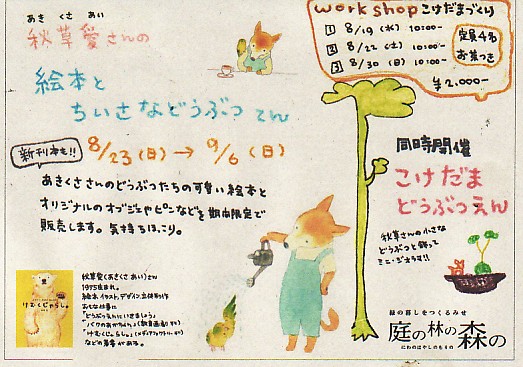 あき くさ あい
秋草愛さんの
絵本と
ちいさなどうぶつてん
新刊本も!!
8/23（日）→ 9/6（日）
あきくささんのどうぶつたちの可愛い絵本と
オリジナルのオブジェやピンなどを期間限定で
販売します。気持ちほっこり。
けむくじゃらしぃ
秋草愛（あきくさ あい）さん
1975生まれ。
絵本、イラスト、デザイン、立体制作
おもな仕事に
などの著書がある。
work shop こけだまづくり
1 8/19（水）10:00-
2 8/22（土）10:00-
3 8/30（日）10:00-
定員4名
お茶つき
¥2,000-
同時開催
こけだま
どうぶつえん
秋草さんの小さな
どうぶつと飾って
ミニ・ジオラマ!!
緑の暮しをつくるみせ
庭の林の森の
にわのはやしのもりの